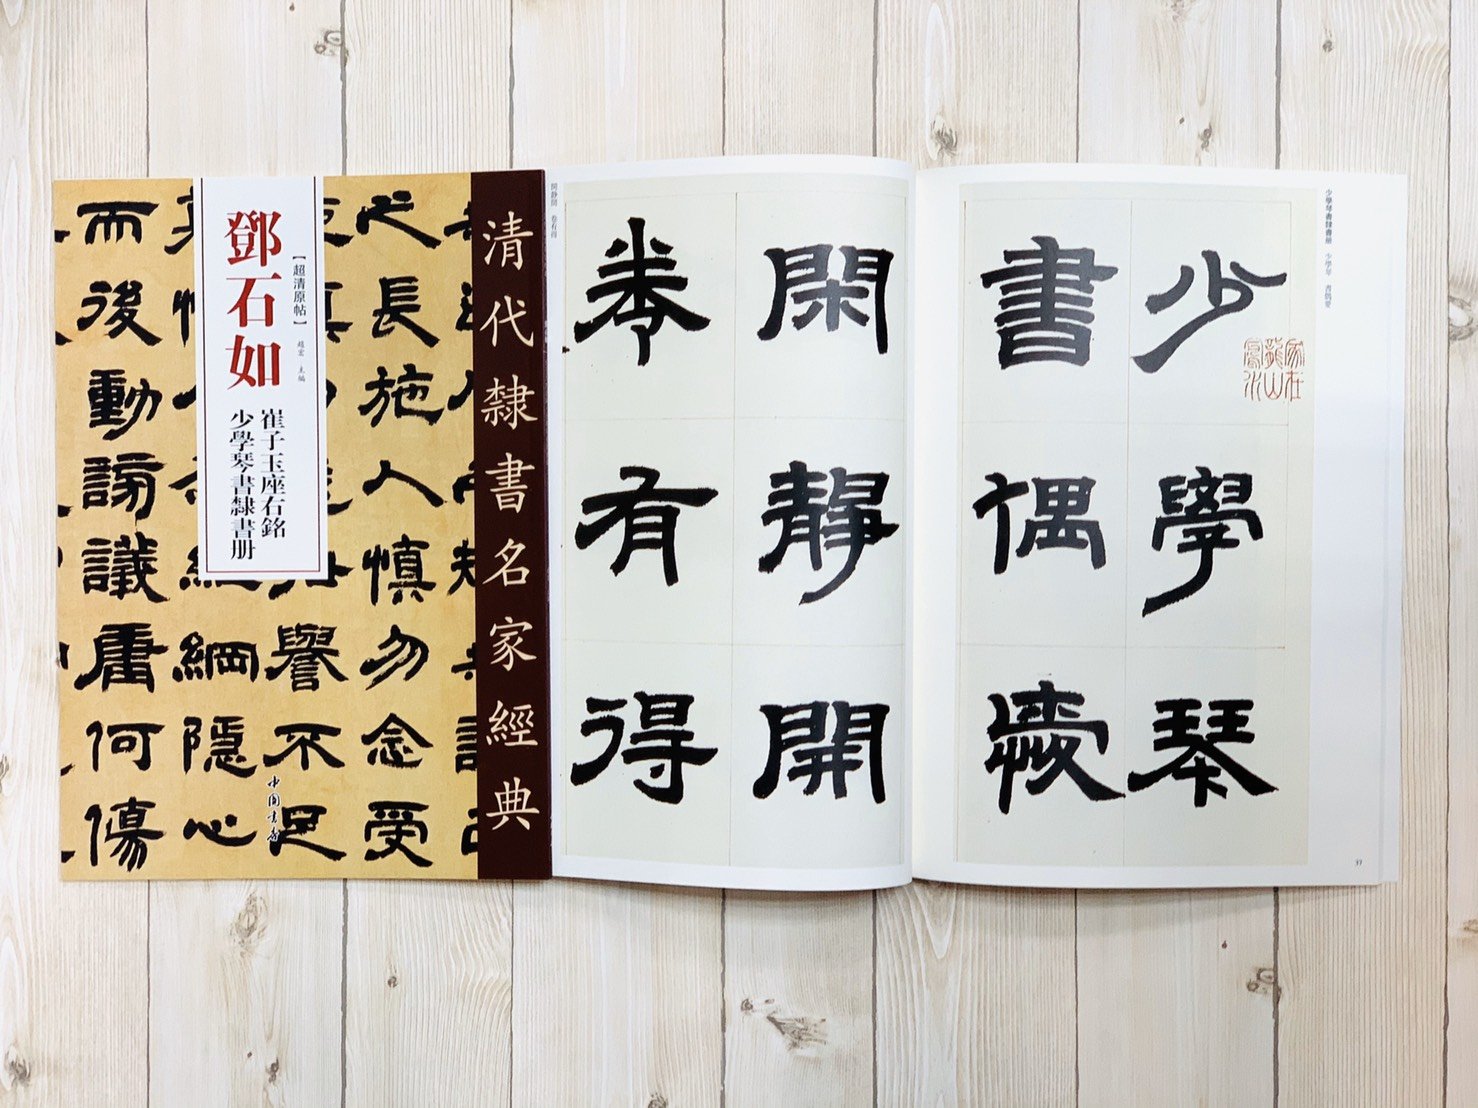 清代隸書名家經典
【超清原帖】
趙宏 主編
鄧石如
崔子玉座右銘
少學琴書隸書册
心長施人慎勿念受
譽不足
綱隱心
而後動謗議庸何傷
中国书店
少學琴書隸書册 少學琴 書偶愛
少學琴
家在
龍山
鳳水
書偶愛
37
閑靜開
卷有得
閑靜開 卷有得